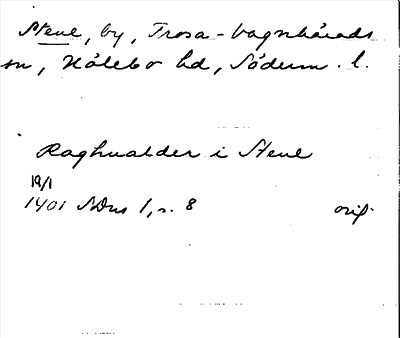 Stene, by, Trosa-Vagnhärads
sn, Hölebo hd, Söderm. l.
Raghualder i Stene
19/1
1401 SDns 1, s. 8 orig.